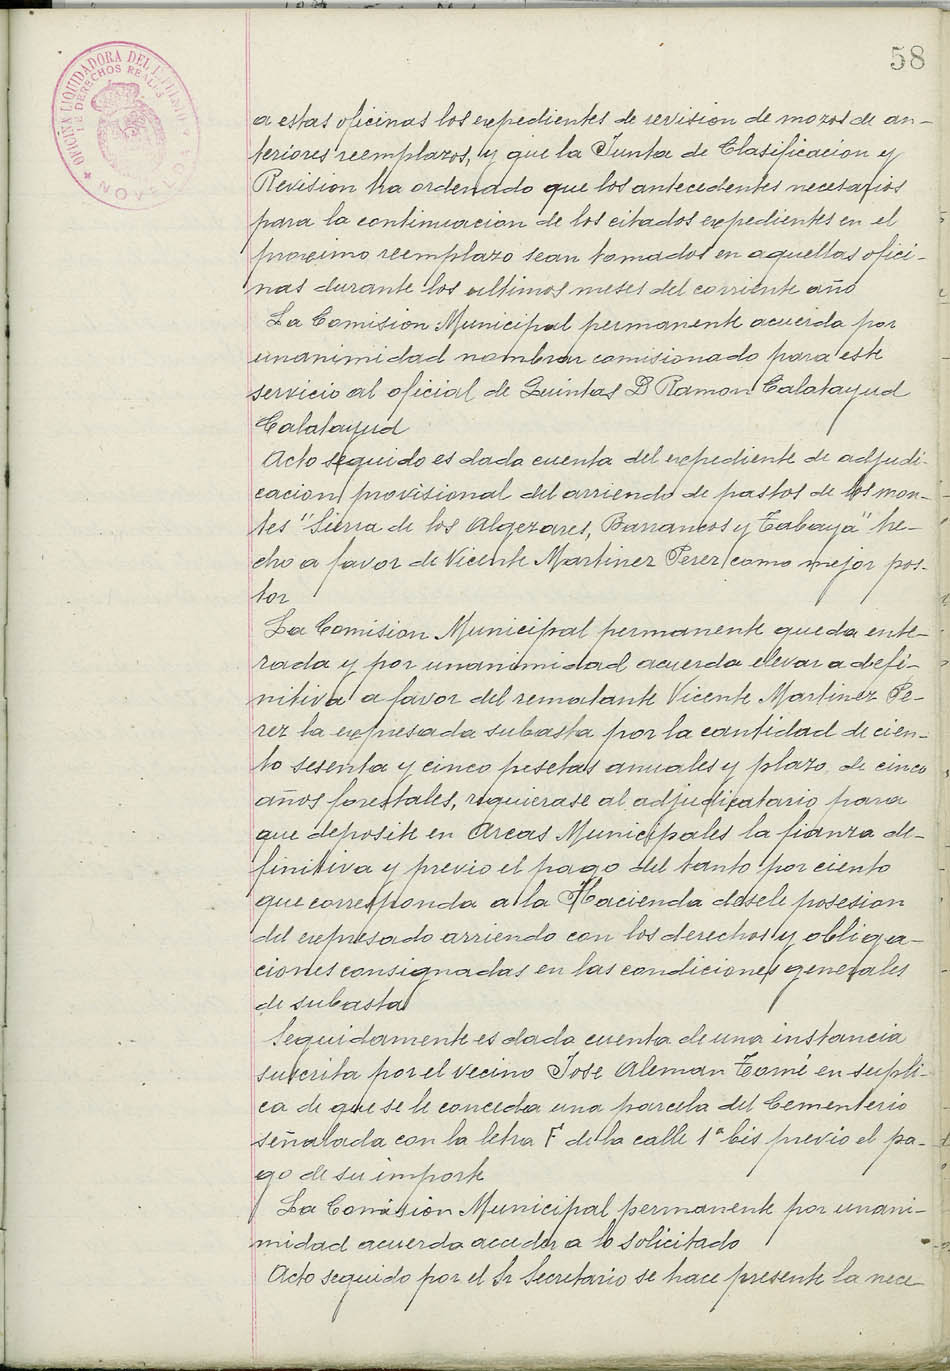 58
OFICINA LIQUIDADORA DEL IMPUESTO
DE DERECHOS REALES
NOVELDA
a estas oficinas los expedientes de revision de mozos de an-
teriores reemplazos, y que la Junta de Clasificacion y
Revision ha ordenado que los antecedentes necesarios
para la continuacion de los citados expedientes en el
proximo reemplazo sean tomados en aquellas ofici-
nas durante los ultimos meses del corriente año
La Comision Municipal permanente acuerda por
unanimidad nombrar comisionado para este
servicio al oficial de Quintas D Ramon Calatayud
Calatayud
Acto seguido es dada cuenta del expediente de adjudi-
cacion provisional del arriendo de pastos de los mon-
tes "Sierra de los Algezares, Barrancos y Tabaya" he-
cho a favor de Vicente Martinez Perez como mejor pos-
tor
La Comision Municipal permanente queda ente-
rada y por unanimidad acuerda elevar a defi-
nitiva a favor del rematante Vicente Martinez Pe-
rez la expresada subasta por la cantidad de cien-
to sesenta y cinco pesetas anuales y plazo de cinco
años forestales, requierase al adjudicatario para
que deposite en Arcas Municipales la fianza de-
finitiva y previo el pago del tanto por ciento
que corresponda a la Hacienda desele posesion
del expresado arriendo con los derechos y obliga-
ciones consignadas en las condiciones generales
de subasta
Seguidamente es dada cuenta de una instancia
suscrita por el vecino Jose Aleman Tomé en supli-
ca de que se le conceda una parcela del Cementerio
señalada con la letra F de la calle 1ª bis previo el pa-
go de su importe
La Comision Municipal permanente por unani-
midad acuerda acceder a lo solicitado
Acto seguido por el Sr Secretario se hace presente la nece